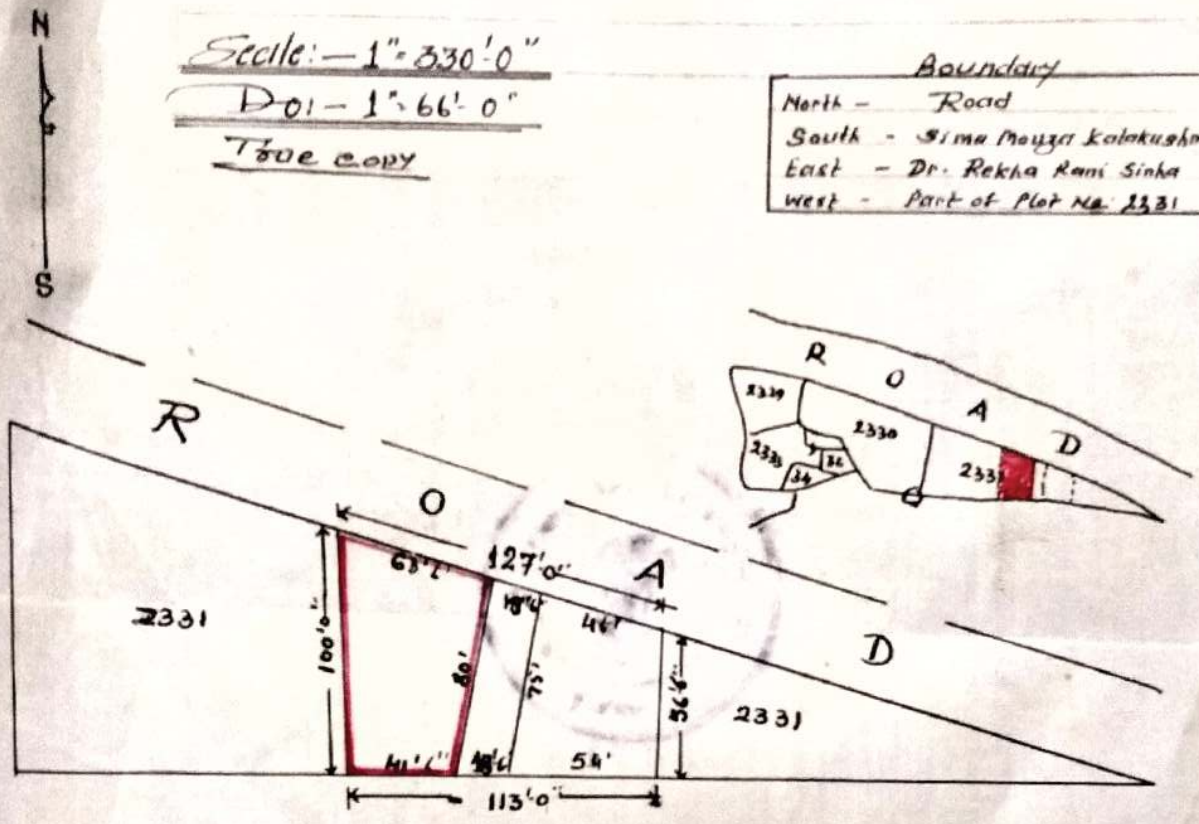 N
S
Scale:- 1"= 330'-0"
Do:- 1"= 66'-0"
True copy
Boundary
North - Road
South - Sima Mouza
East - Dr. Rekha Rani Sinha
West - Part of Plot No. 2331
R O A D
2329
2330
2333
32
34
2331
R O A D
2331
127'0"
63'6"
46'
100'0"
80'
75'
56'6"
2331
41'6"
54'
113'0"